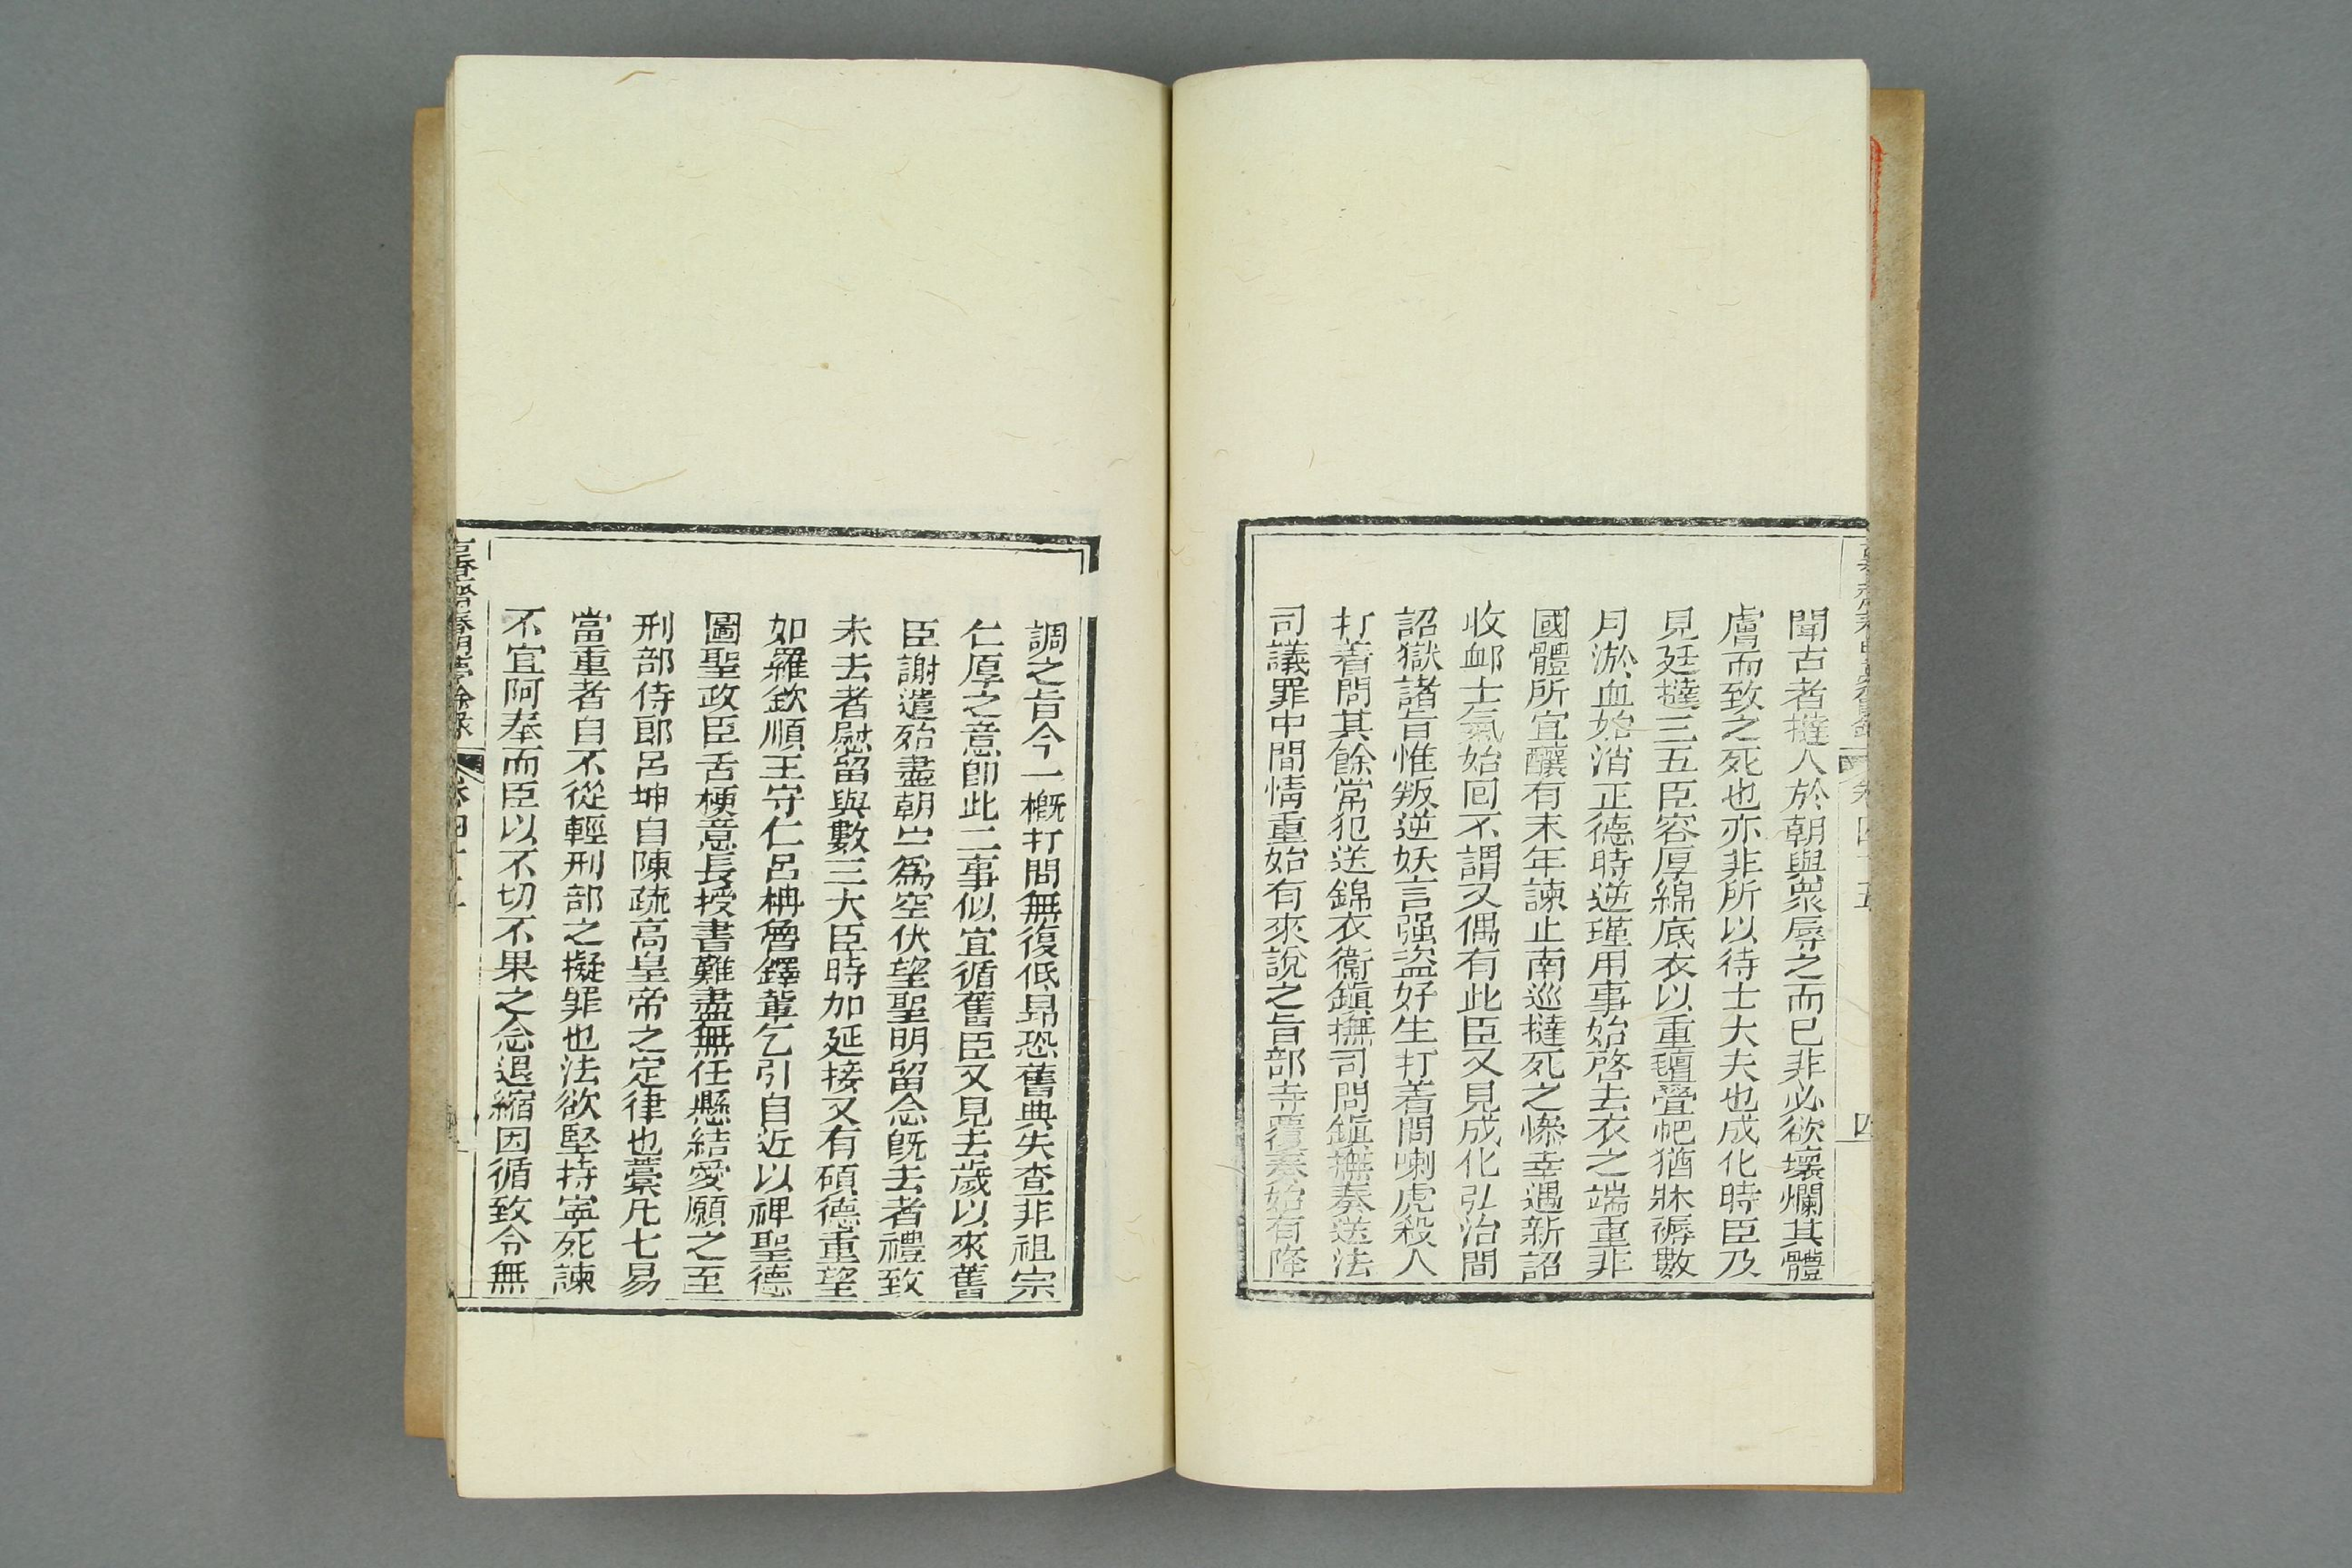 聞古者撻人於朝與衆辱之而已非必欲壞爛其體
膚而致之死也亦非所以待士大夫也成化時臣乃
見廷撻三五臣容厚綿底衣以重氊疊帊猶牀褥數
月淤血始消正德時逆瑾用事始啓去衣之端重非
國體所宜釀有末年諫止南巡撻死之慘幸遇新詔
收䘏士氣始回不謂又偶有此臣又見成化弘治間
詔獄諸旨惟叛逆妖言强盜好生打着問喇虎殺人
打着問其餘常犯送錦衣衞鎮撫司問鎮撫奏送法
司議罪中間情重始有來說之旨部寺覆奏始有降
調之旨今一槪打問無復低昻恐舊典失查非祖宗
仁厚之意卽此二事似宜循舊臣又見去歲以來舊
臣謝遣殆盡朝㟁爲空伏望聖明留念旣去者禮致
未去者慰留與數三大臣時加延接又有碩德重望
如羅欽順王守仁呂柟魯鐸輩乞引自近以裨聖德
圖聖政臣舌梗意長授書難盡無任懸結愛願之至
刑部侍郎呂坤自陳疏高皇帝之定律也藁凡七易
當重者自不從輕刑部之擬罪也法欲堅持寧死諫
不宜阿奉而臣以不切不果之念退縮因循致令無
春明夢餘録